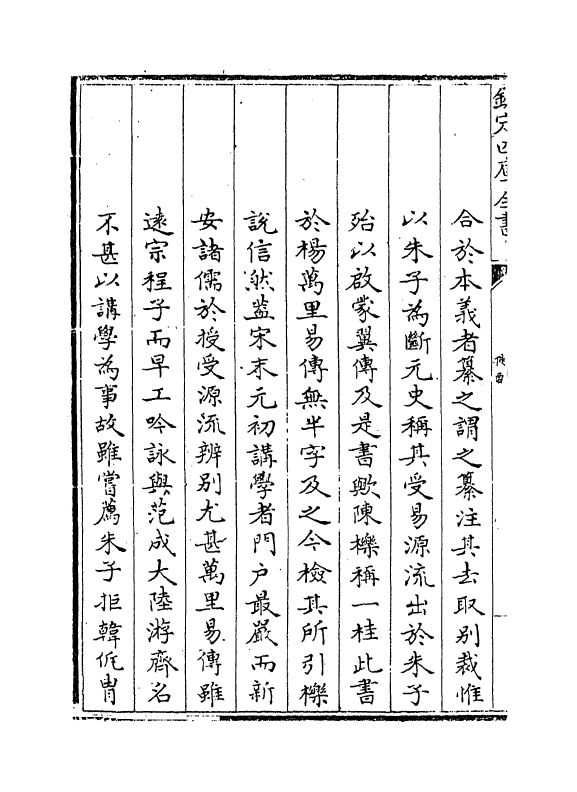 欽定四庫全書
合於本義者纂之謂之纂注其去取别裁惟
以朱子為斷元史稱其受易源流出於朱子
殆以啟蒙翼傳及是書歟陳櫟稱一桂此書
於楊萬里易傳無半字及之今檢其所引櫟
說信然葢宋末元初講學者門戶最嚴而新
安諸儒於授受源流辨别尤甚萬里易傳雖
遠宗程子而早工吟詠與范成大陸游齊名
不甚以講學為事故雖嘗薦朱子拒韓侂胄